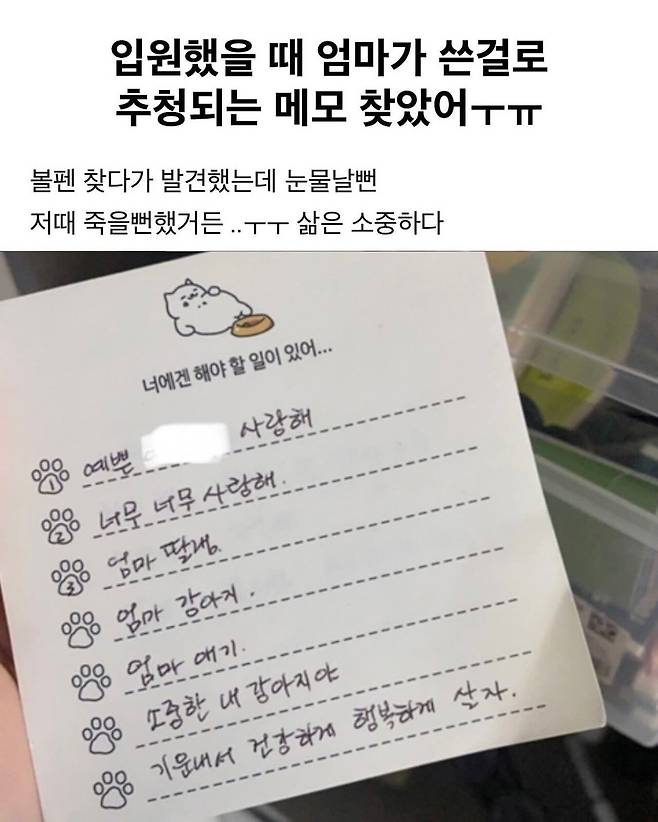 입원했을 때 엄마가 쓴걸로
추청되는 메모 찾았어ㅜㅠ
볼펜 찾다가 발견했는데 눈물날뻔
저때 죽을뻔했거든 ..ㅜㅜ 삶은 소중하다
너에겐 해야 할 일이 있어...
1 예쁜 사랑해
2 너무 너무 사랑해.
3 엄마 딸래.
엄마 강아지.
엄마 애기.
소중한 내 강아지야
기운내서 건강하게 행복하게 살자.